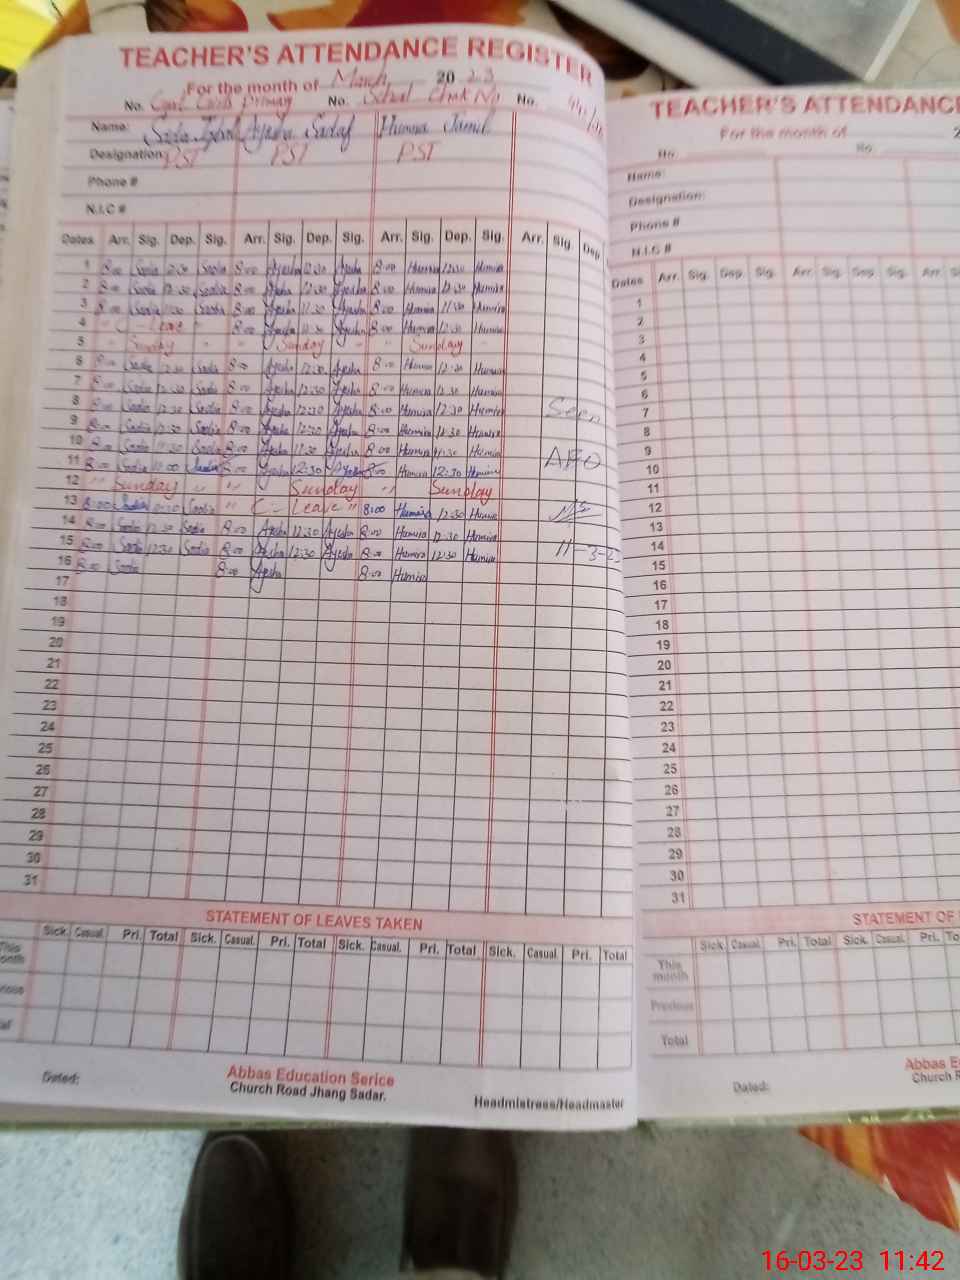 TEACHER'S ATTENDANCE REGISTER
For the month of March 2023
No. Primary No. School Chak No No.
Name: Sadia Ayesha Sadaf Humira Jamil
Designation: PST PST PST
Phone #
N.I.C #
Dates Arr. Sig. Dep. Sig. Arr. Sig. Dep. Sig. Arr. Sig. Dep. Sig. Arr. Sig. Dep.
1 8:00 Sadia 12:30 Sadia 8:00 Ayesha 12:30 Ayesha 8:00 Humira 12:30 Humira
2 8:00 Sadia 12:30 Sadia 8:00 Ayesha 12:30 Ayesha 8:00 Humira 12:30 Humira
3 8:00 Sadia 11:30 Sadia 8:00 Ayesha 11:30 Ayesha 8:00 Humira 11:30 Humira
4 " C - Leave " 8:00 Ayesha Ayesha 8:00 Humira 12:30 Humira
5 " Sunday " " Sunday " " Sunday "
6 8:00 Sadia 12:30 Sadia 8:00 Ayesha 12:30 Ayesha 8:00 Humira 12:30 Humira
7 8:00 Sadia 12:30 Sadia 8:00 Ayesha 12:30 Ayesha 8:00 Humira 12:30 Humira
8 8:00 Sadia 12:30 Sadia 8:00 Ayesha 12:30 Ayesha 8:00 Humira 12:30 Humira Seen
9 8:00 Sadia 12:30 Sadia 8:00 Ayesha 12:30 Ayesha 8:00 Humira 12:30 Humira
10 8:00 Sadia 11:30 Sadia 8:00 Ayesha 11:30 Ayesha 8:00 Humira 11:30 Humira AEO
11 8:00 Sadia Sadia 8:00 Ayesha 12:30 Ayesha 8:00 Humira 12:30 Humira
12 " Sunday " " Sunday " Sunday
13 8:00 Sadia 12:30 Sadia " C - Leave " 8:00 Humira 12:30 Humira
14 8:00 Sadia 12:30 Sadia 8:00 Ayesha 12:30 Ayesha 8:00 Humira 12:30 Humira
15 8:00 Sadia 12:30 Sadia 8:00 Ayesha 12:30 Ayesha 8:00 Humira 12:30 Humira 11-3-23
16 8:00 Sadia 8:00 Ayesha 8:00 Humira
17
18
19
20
21
22
23
24
25
26
27
28
29
30
31
STATEMENT OF LEAVES TAKEN
Sick. Casual. Pri. Total Sick. Casual. Pri. Total Sick. Casual. Pri. Total Sick. Casual. Pri. Total
This
Dated:
Abbas Education Serice
Church Road Jhang Sadar.
Headmistress/Headmaster
TEACHER'S ATTENDANCE
For the month of 2
No. No.
Name:
Designation:
Phone #
N.I.C #
Dates Arr. Sig. Dep. Sig. Arr. Sig. Dep. Sig. Arr. Sig.
1
2
3
4
5
6
7
8
9
10
11
12
13
14
15
16
17
18
19
20
21
22
23
24
25
26
27
28
29
30
31
STATEMENT OF
Sick. Casual. Pri. Total Sick. Casual. Pri.
This
month
Previous
Total
Dated:
Abbas
Church
16-03-23 11:42